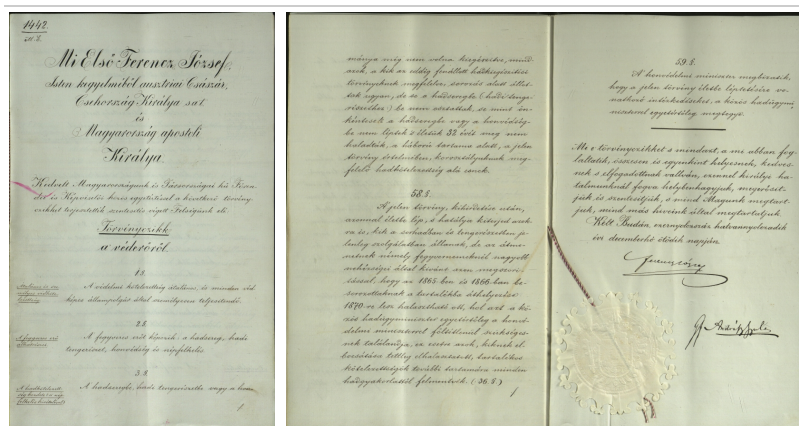 1442.
Mi Első Ferencz József,
Isten kegyelméből ausztriai Császár,
Csehország Királya sat.
és
Magyarország apostoli
Királya.
Kedvelt Magyarországunk és Társországai hű Főren-
dei és Képviselői közös egyetértéssel a következő törvény-
czikket terjesztették szentesítés végett Felségünk elé:
Törvényczikk
a véderőről.
1.§.
A védelmi kötelezettség általános, és minden véd-
képes állampolgár által személyesen teljesítendő.
2.§.
A fegyveres erőt képezik: a hadsereg, hadi
tengerészet, honvédség és népfelkelés.
3.§.
A hadseregbe, hadi tengerészetbe vagy a hon-
mánya még nem volna kiegészítve, mind-
azok, a kik az eddig fenállott hadkiegészítési
törvényeknek megfelelve, sorozás alatt állot-
tak ugyan, de ez a hadseregbe (hadi tenge-
részethez) be nem osztattak, se mint ön-
kéntesek a hadseregbe vagy a honvédség-
be nem léptek s életük 32 évét meg nem
haladták, a háború tartama alatt, a jelen
törvény értelmében, korosztályuknak meg-
felelő hadkötelezettség alá esnek.
58.§.
A jelen törvény, kihirdetése után,
azonnal életbe lép, s hatálya kiterjed azok-
ra is, kik a sorhadban és tengerészetben je-
lenleg szolgálatban állanak, de az átme-
netnek némely fegyvernemeknél nagyobb
nehézségei által kívánt nem megszorí-
tással, hogy az 1865-ben és 1866-ban be-
sorozottaknak a tartalékba áthelyezése
1870-re lesz halasztható ott, hol ezt a kö-
zös hadügyminister egyetértőleg a honvé-
delmi ministerrel föltétlenül szükséges-
nek találandja, ez esetre azok, kiknek el-
bocsátása tettleg elhalasztatott, tartalékos
kötelezettségük további tartamára minden
hadgyakorlattól felmentvék. (36.§.)
59.§.
A honvédelmi minister megbizatik,
hogy a jelen törvény életbe léptetésére vo-
natkozó intézkedéseket, a közös hadügymi-
nisterrel egyetértőleg megtegye.
Mi e törvényczikket s mindazt, a mi abban fog-
laltatik, összesen és egyenkint helyesnek, kedves-
nek s elfogadottnak vallván, ezennel királyi ha-
talmunknál fogva helybenhagyjuk, megerősít-
jük és szentesítjük, s mind Magunk megtart-
juk, mind más híveink által megtartatjuk.
Kelt Budán, ezernyolczszáz hatvannyolczadik
évi deczemberhó ötödik napján.
Ferencz József
Gr Andrássy Gyula